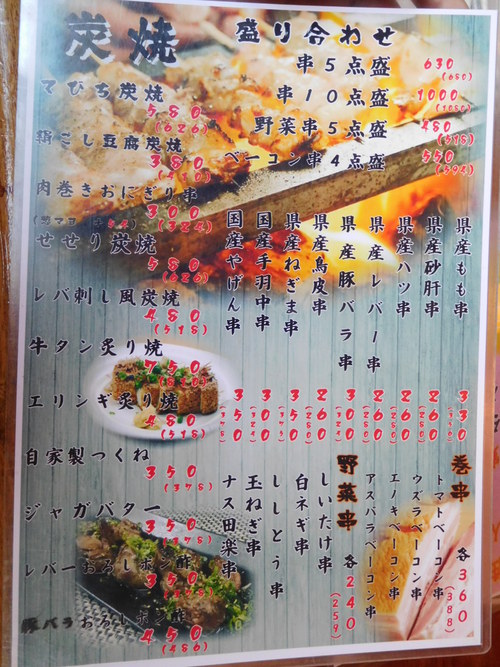 炭焼
てびち炭焼
580
(626)
絹ごし豆腐炭焼
380
(410)
肉巻きおにぎり串
300
(324)
せせり炭焼
580
(626)
レバ刺し風炭焼
480
(518)
牛タン炙り焼
750
(810)
エリンギ炙り焼
480
(518)
自家製つくね
350
(378)
ジャガバター
350
(378)
レバーおろしポン酢
350
(378)
豚バラおろしポン酢
450
(486)
盛り合わせ
串5点盛 630
(680)
串10点盛 1000
(1080)
野菜串5点盛 480
(518)
ベーコン串4点盛 550
(594)
県産もも串 330
県産砂肝串 260
県産ハツ串 260
県産レバー串 260
県産豚バラ串 300
県産鳥皮串 260
県産ねぎま串 350
国産手羽中串 300
国産やげん串 350
巻串
トマトベーコン串
ウズラベーコン串
エノキベーコン串
アスパラベーコン串
各360
(388)
野菜串
しいたけ串
白ネギ串
ししとう串
玉ねぎ串
ナス田楽串
各240
(259)